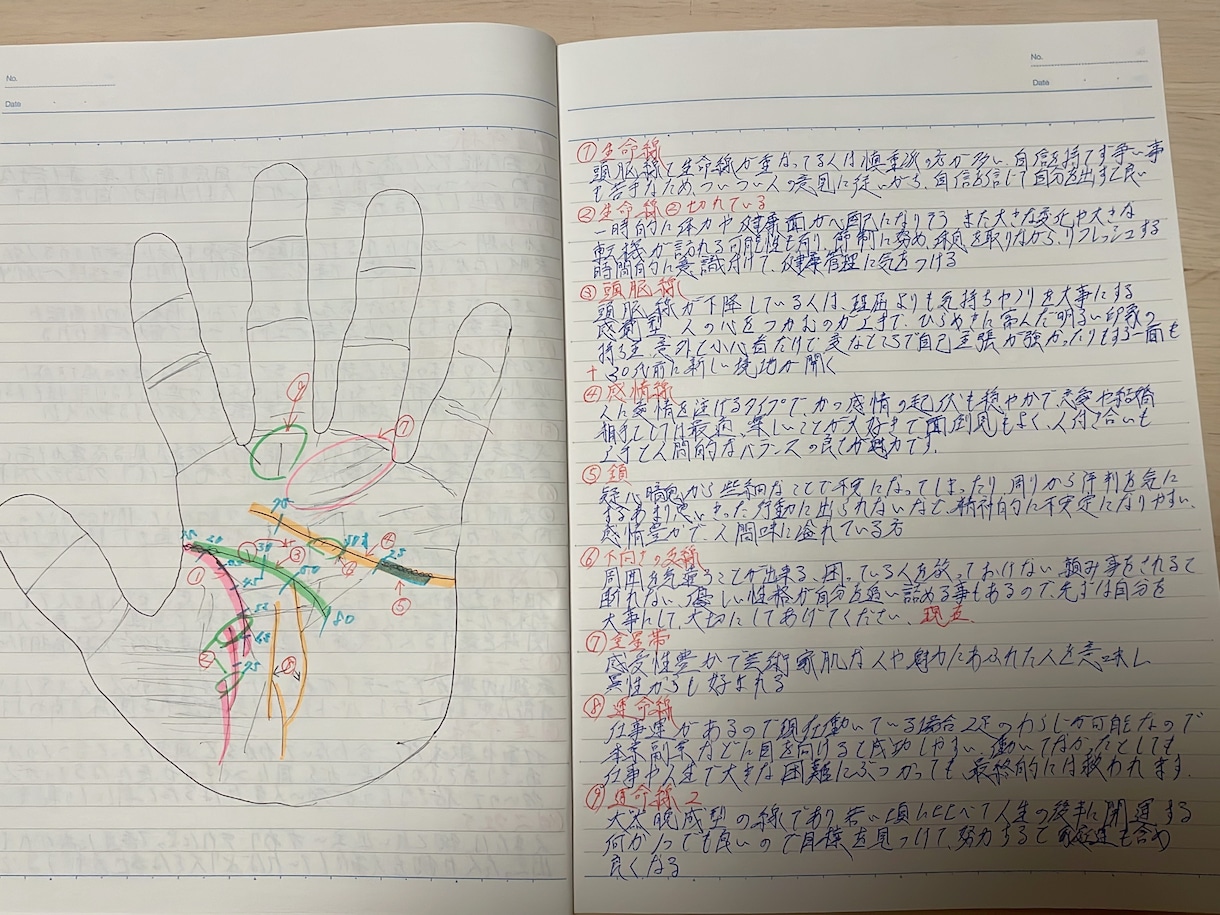 No.
Date
⑨
⑦
75
15
20
①
30
③
25
35
④
50
⑥
25
⑤
①
45
50
80
②
75
⑧
No.
Date
①生命線
頭脳線と生命線が重なってる人は慎重派の方が多い、自信を持てず争い事
も苦手なため、ついつい人の意見に従いがち、自信を信じて自分を出すと良い
②生命線② 切れている
一時的に体力や健康面が心配になりそう、また大きな変化や大きな
転機が訪れる可能性も有り、節制に努め、休息を取りながら、リフレッシュする
時間的に意識付けて、健康管理に気をつける
③頭脳線
頭脳線が下降している人は、理屈よりも気持ちやノリを大事にする
感覚型、人の心をつかむのが上手で、ひらめきに富んだ明るい印象の
持ち主、意外と小心者だけで変なところで自己主張が強かったりもする一面も
+ 30代前に新しい境地が開く
④感情線
人に愛情を注げるタイプで、かつ感情の起伏も穏やかで、恋愛や結婚
相手としては最適、楽しいことが大好きで面倒見もよく、人付き合いも
上手で人間的なバランスの良さが魅力です。
⑤鎖
疑心暗鬼から些細なことで不安になってしまったり、周りから評判を気に
するあまり思いきった行動に出られないなど、精神的に不安定になりやすい、
感情豊かで、人間味に溢れている方
⑥下向きの支線
周囲を気遣うことが出来る、困っている人を放っておけない、頼み事をされると
断れない、優しい性格が自分を追い詰める事もあるので、先ずは自分を
大事にして、大切にしてあげてください、
⑦金星帯
感受性豊かで芸術家肌な人や魅力にあふれた人を意味し
異性からも好まれる
⑧運命線
仕事運があるので現在働いている場合2足のわらじが可能なので
本業副業などに目を向けると成功しやすい、働いてなかったとしても
仕事や人生で大きな困難にぶつかっても、最終的には救われます.
⑨運命線2
大器晩成型の線であり若い頃にくらべて人生の後半に開運する
何かたっても良いので目標を見つけて、努力すると 家庭運も含め
良くなる